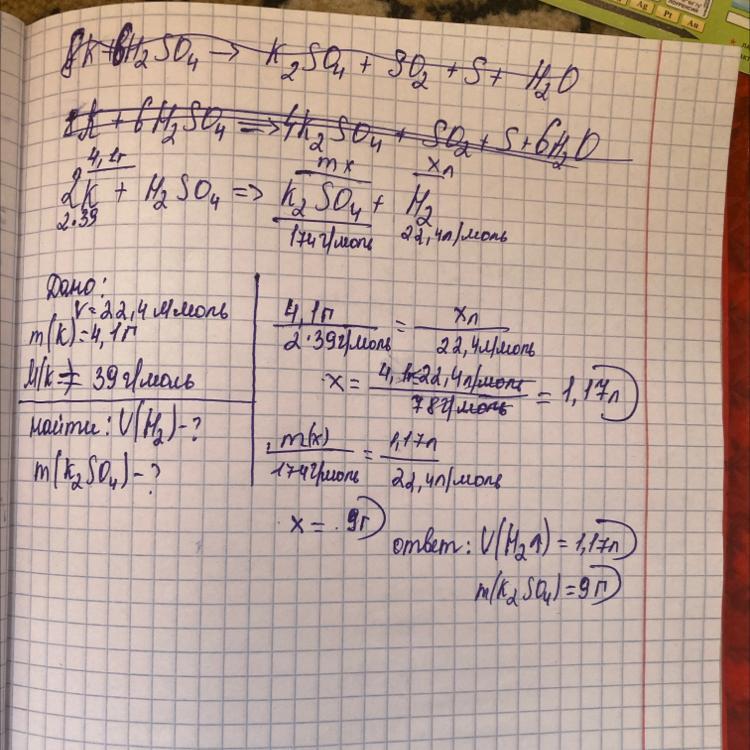 8K + 6H₂SO₄ → K₂SO₄ + SO₂ + S + H₂O
8K + 6H₂SO₄ => 4K₂SO₄ + SO₂ + S + 6H₂O
4,1г mx xл
2K + H₂SO₄ => K₂SO₄ + H₂
2·39 174г/моль 22,4л/моль
Дано:
V=22,4л/моль
m(K)=4,1г
M(K)= 39г/моль
найти: V(H₂)-?
m(K₂SO₄)-?
4,1г/2·39г/моль = xл/22,4л/моль
x = 4,1г·22,4л/моль/78г/моль = 1,17л
m(x)/174г/моль = 1,17л/22,4л/моль
x = 9г
ответ: V(H₂↑) = 1,17л
m(K₂SO₄) = 9г
Ag
Pt
Au